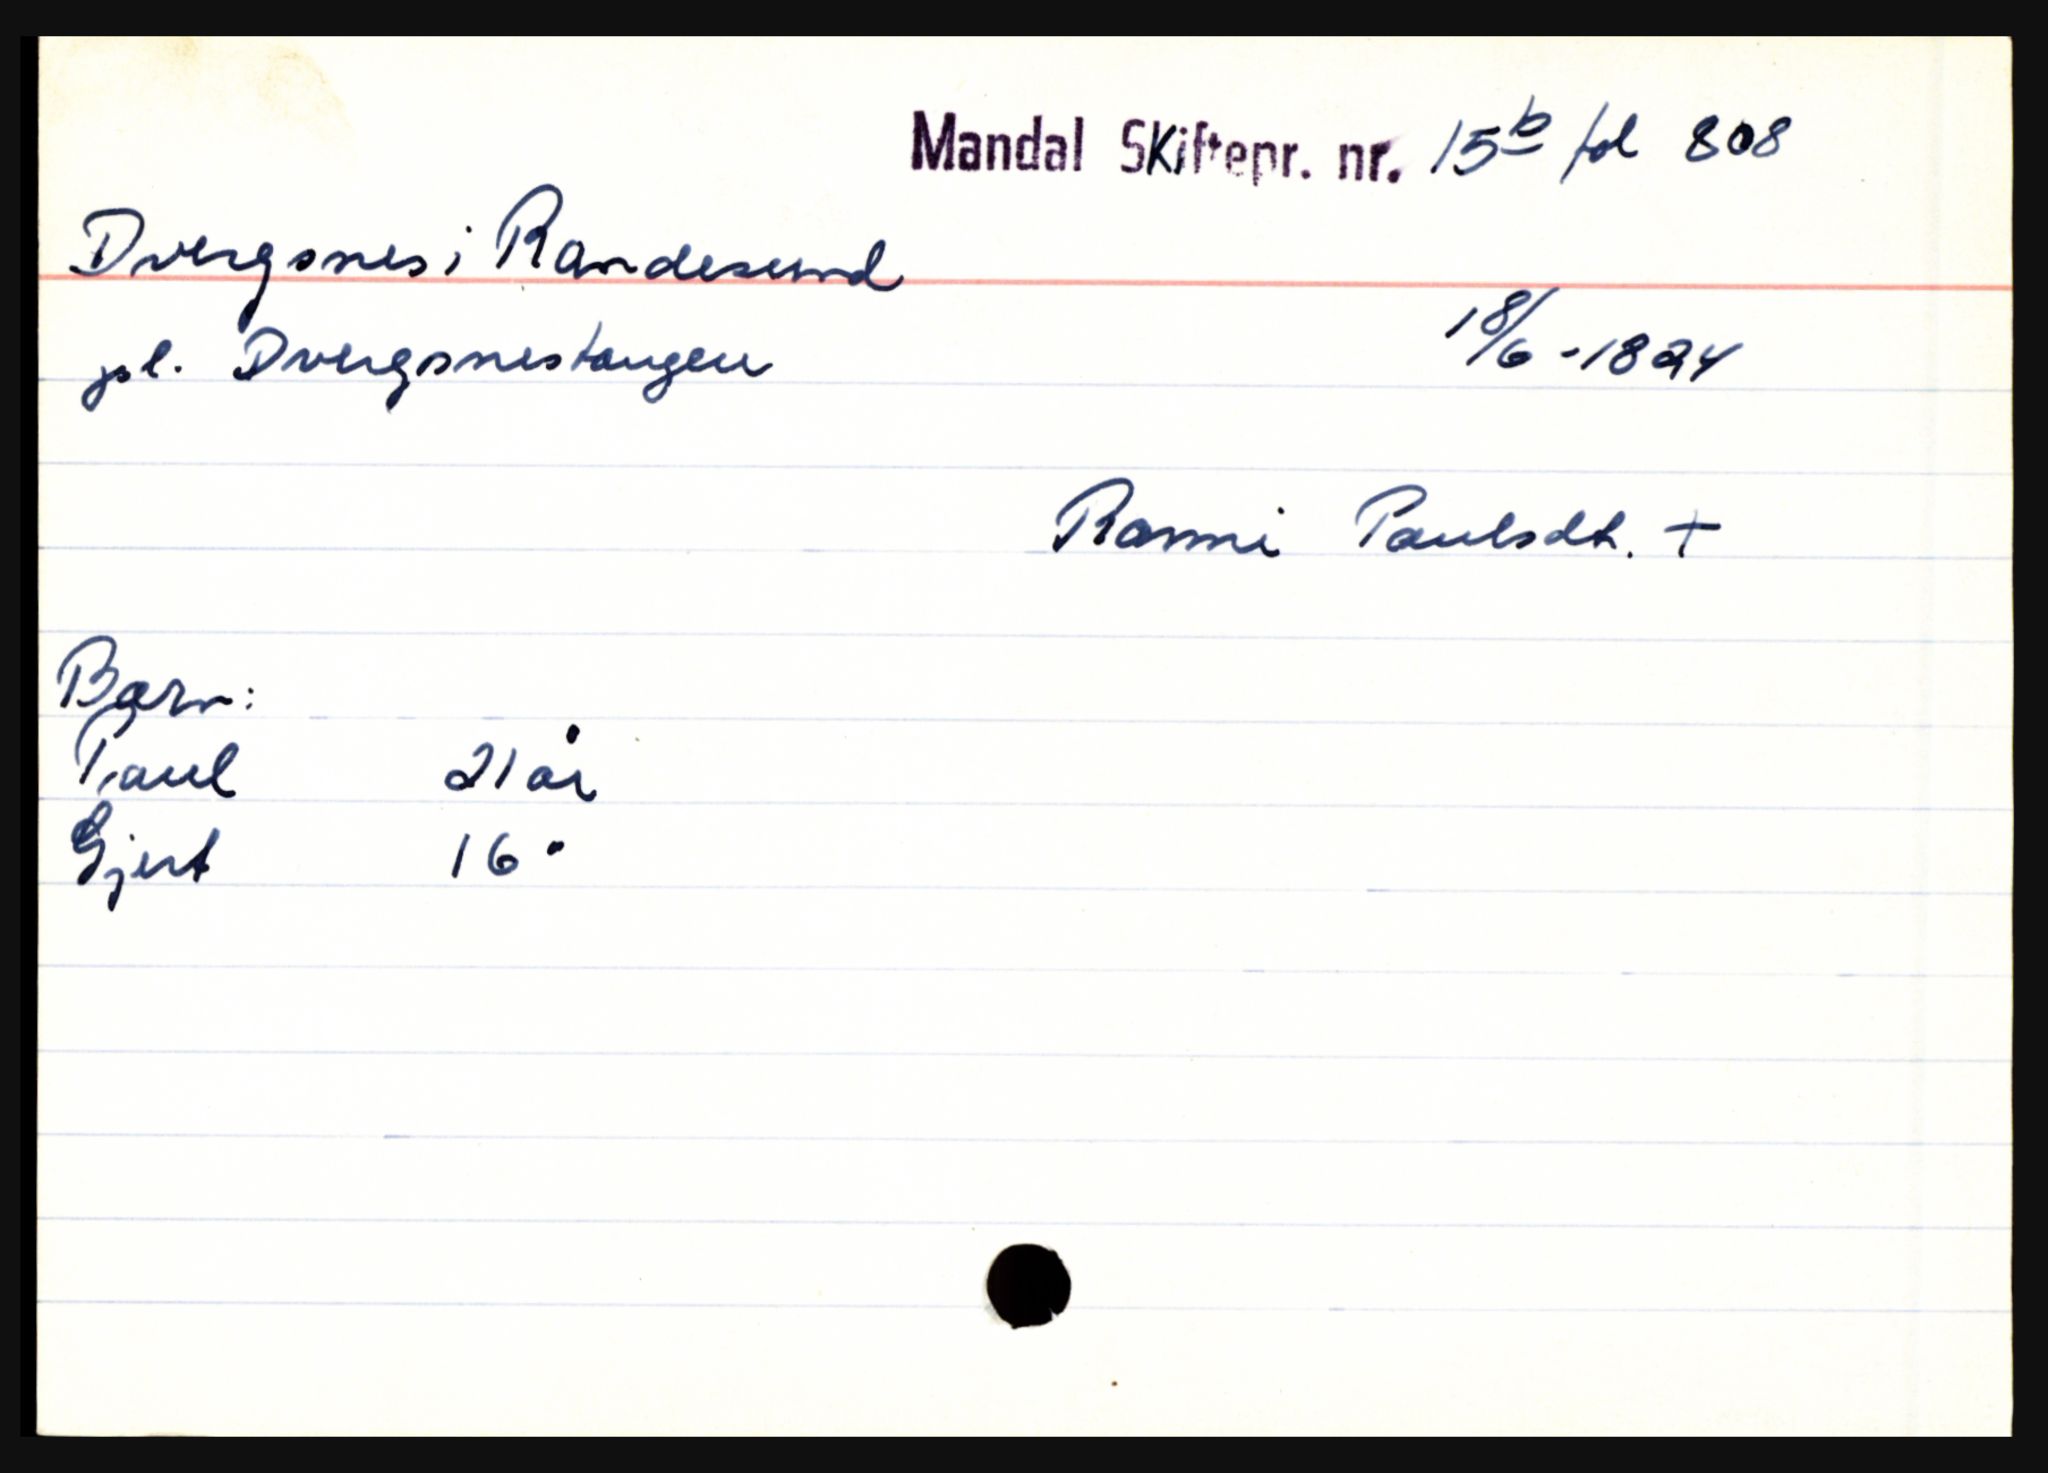 Mandal Skiftepr. nr. 15b fol 808
Dvergsnes i Randesund
pl. Dvergsnestangen 18/6 - 1824
Ranni Paulsdt. +
Barn:
Paul 21 år
Gjert 16 "